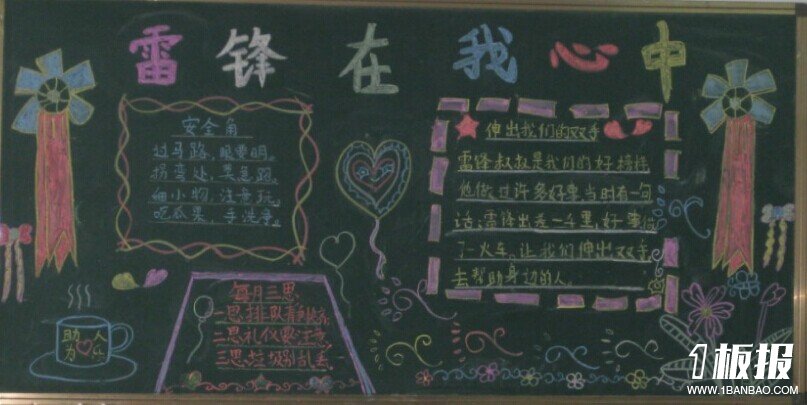 雷锋在我心中
安全角
过马路，眼要明。
拐弯处，莫急跑。
细小物，注意玩。
吃瓜果，手洗净。
伸出我们的双手
雷锋叔叔是我们的好榜样
他做过许多好事，当时有一句
话：雷锋出差一千里，好事做
了一火车。让我们伸出双手
去帮助身边的人。
每月三思
一思排队有
二思礼仪要注意
三思垃圾别乱丢
助人
为
1板报
WWW.1BANBAO.COM